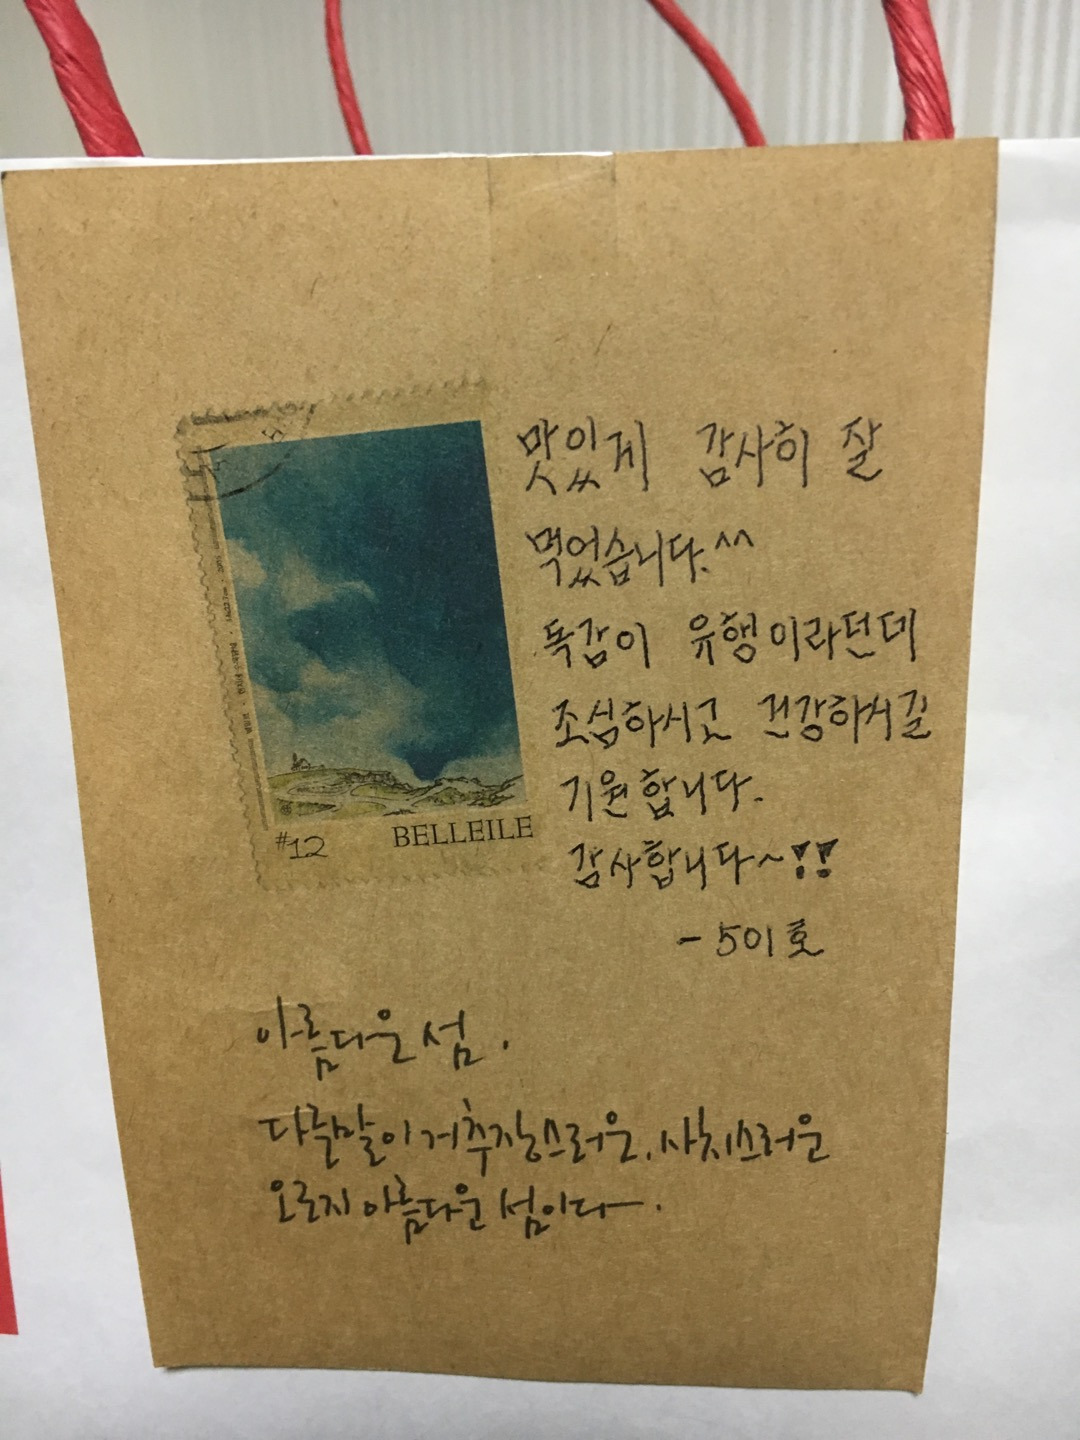 맛있게 감사히 잘
먹었습니다.^^
독감이 유행이라던데
조심하시고 건강하시길
기원합니다.
감사합니다~!!
- 501호
#12 BELLEILE
아름다운 섬.
다른말이 거추장스러운, 사치스러운
오로지 아름다운 섬이다.